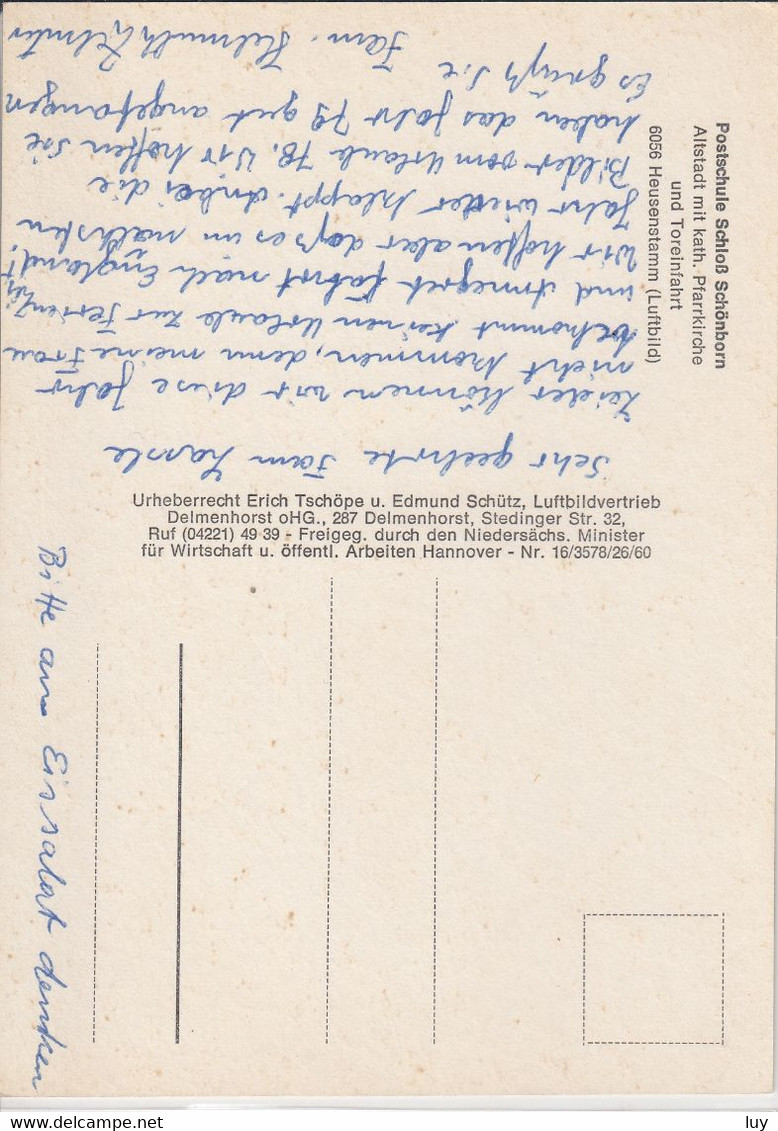 Postschule Schloß Schönborn
Altstadt mit kath. Pfarrkirche
und Toreinfahrt
6056 Heusenstamm (Luftbild)
Urheberrecht Erich Tschöpe u. Edmund Schütz, Luftbildvertrieb
Delmenhorst oHG., 287 Delmenhorst, Stedinger Str. 32,
Ruf (04221) 49 39 - Freigeg. durch den Niedersächs. Minister
für Wirtschaft u. öffentl. Arbeiten Hannover - Nr. 16/3578/26/60
Sehr geehrte Fam
Leider können wir diese Jahr
nicht kommen, denn meine Frau
bekommt keinen Urlaub zur Ferienzeit
und Annegret fährt nach England!
Wir hoffen aber daß es im nächsten
Jahr wieder klappt. Anbei die
Bilder vom Urlaub 78. Wir hoffen Sie
haben das Jahr 79 gut angefangen
Es grüßt Sie Fam. Helmuth
Bitte an Eissalat denken
luy